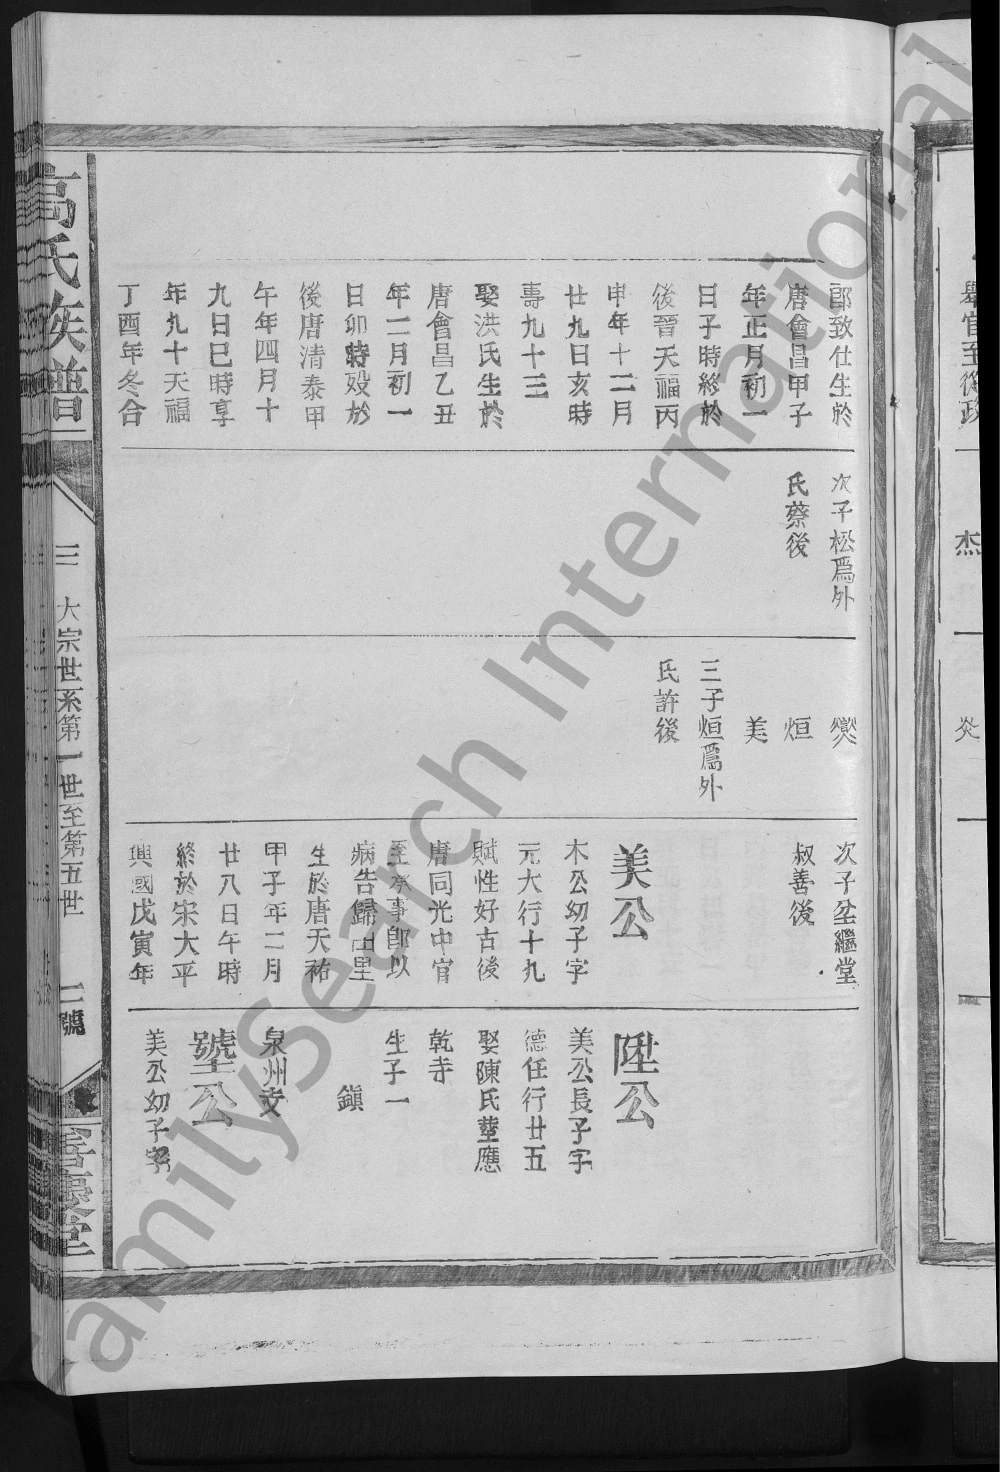 郎致仕生於
唐會昌甲子
年正月初一
日子時終於
後晉天福丙
申年十二月
廿九日亥時
壽九十三
娶洪氏生於
唐會昌乙丑
年二月初一
日卯時歿於
後唐清泰甲
午年四月十
九日巳時享
年九十天福
丁酉年冬合
次子松爲外
氏蔡後
燬
烜
美
三子烜爲外
氏許後
次子坌繼堂
叔善後
美公
木公幼子字
元大行十九
賦性好古後
唐同光中官
至承事郎以
病告歸田里
生於唐天祐
甲子年二月
廿八日午時
終於宋太平
興國戊寅年
陞公
美公長子字
德任行廿五
娶陳氏塟應
乾寺
生子一
鎮
泉州支
號公
美公幼子字
高氏族譜
三 大宗世系第一世至第五世
一號
舉官至從政
杰
炎
FamilySearch International